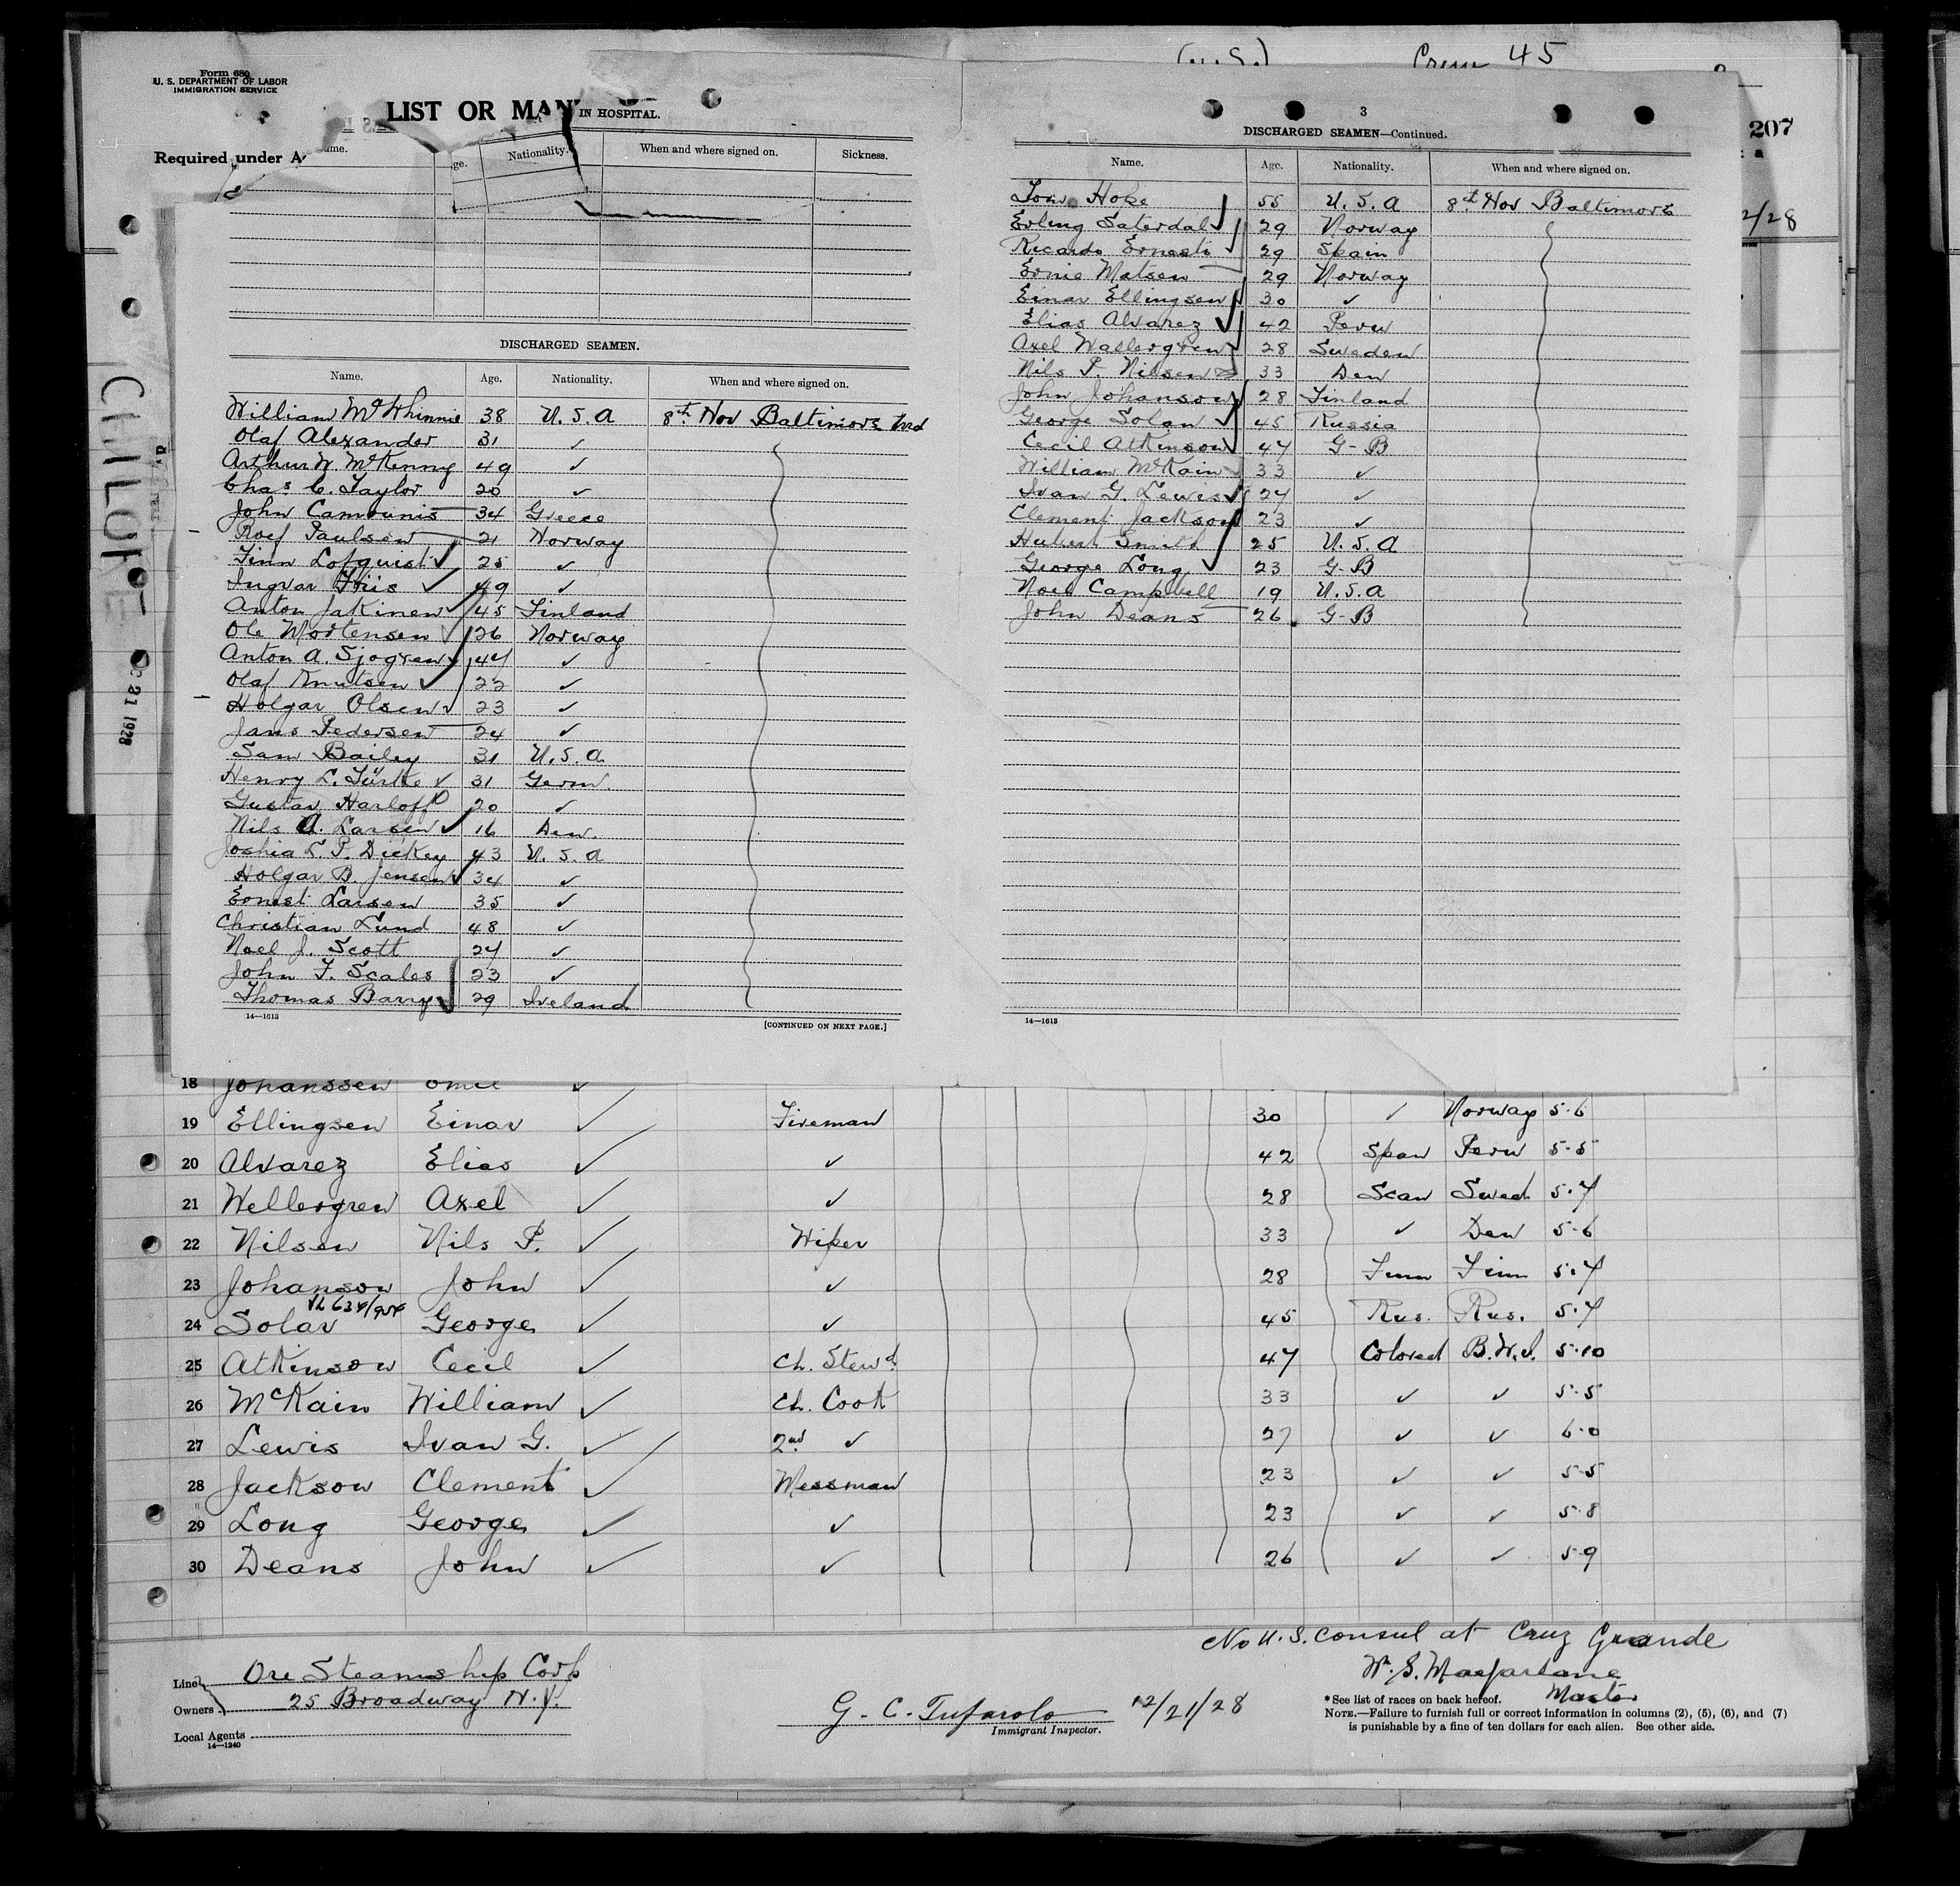 (U.S.) Crew 45
Form 680
U. S. DEPARTMENT OF LABOR
IMMIGRATION SERVICE
LIST OR MAN
Required under A
207
2/28
CHILOPE
21 1928
IN HOSPITAL.
Nationality. When and where signed on. Sickness.
DISCHARGED SEAMEN.
Name. Age. Nationality. When and where signed on.
William McWhinnie 38 U.S.A 8th Nov Baltimore Md
Olaf Alexander 31 ✓
Arthur W. McKenny 49 ✓
Chas. C. Taylor 20 ✓
John Camounis 34 Greece
Rolf Paulsen 21 Norway
Finn Lofquist ✓ 25 ✓
Ingvar Friis ✓ 49 ✓
Anton Jakinen ✓ 45 Finland
Ole Mortensen ✓ 26 Norway
Anton A. Sjogren ✓ 47 ✓
Olaf Knutsen ✓ 22 ✓
Holgar Olsen ✓ 23 ✓
Jans Pedersen 24 ✓
Sam Bailey 31 U.S.A
Henry L. Türke ✓ 31 Germ.
Gustav Harloff 20 ✓
Nils A. Larsen ✓ 16 Den.
Joshia L. P. Dickey 43 U.S.A
Holgar B. Jensen ✓ 34 ✓
Ernest Larsen 35 ✓
Christian Lund 48 ✓
Noel J. Scott 27 ✓
John F. Scales 23 ✓
Thomas Barry ✓ 29 Ireland
14—1613
[CONTINUED ON NEXT PAGE.]
3
DISCHARGED SEAMEN—Continued.
Name. Age. Nationality. When and where signed on.
Tom Hoke 55 U.S.A 8th Nov Baltimore
Erling Saterdal ✓ 29 Norway
Ricardo Ernesti 29 Spain
Ernie Matsen 29 Norway
Einar Ellingsen ✓ 30 ✓
Elias Alvarez ✓ 42 Peru
Axel Wallergren 28 Sweden
Nils P. Nilsen 33 Den
John Johanson 28 Finland
George Solan ✓ 45 Russia
Cecil Atkinson ✓ 47 G-B
William McKain 33 ✓
Ivan G. Lewis ✓ 27 ✓
Clement Jackson 23 ✓
Hubert Smith 25 U.S.A
George Long ✓ 23 G-B
Noel Campbell 19 U.S.A
John Deans 26 G-B
14—1613
18 Johanssen Emil ✓
19 Ellingsen Einar ✓ Fireman 30 ✓ Norway 5.6
20 Alvarez Elias ✓ ✓ 42 Span Peru 5.5
21 Wellergren Axel ✓ ✓ 28 Scan Swed 5.7
22 Nilsen Nils P. ✓ Wiper 33 ✓ Den 5.6
23 Johanson John ✓ ✓ 28 Finn Finn 5.7
24 Solav George ✓ ✓ 45 Rus. Rus. 5.7
25 Atkinson Cecil ✓ Ch. Stewd. 47 Colored B.W.I. 5.10
26 McKain William ✓ Ch. Cook 33 ✓ ✓ 5.5
27 Lewis Ivan G. ✓ 2nd ✓ 27 ✓ ✓ 6.0
28 Jackson Clement ✓ Messman 23 ✓ ✓ 5.5
29 Long George ✓ ✓ 23 ✓ ✓ 5.8
30 Deans John ✓ ✓ 26 ✓ ✓ 5.9
No U.S. Consul at Cruz Grande
Wm. S. Macfarlane
Master
Line Ore Steamship Corp
Owners 25 Broadway N.Y.
Local Agents
14—1240
G. C. Tufarolo 12/21/28
Immigrant Inspector.
*See list of races on back hereof.
NOTE.—Failure to furnish full or correct information in columns (2), (5), (6), and (7)
is punishable by a fine of ten dollars for each alien. See other side.